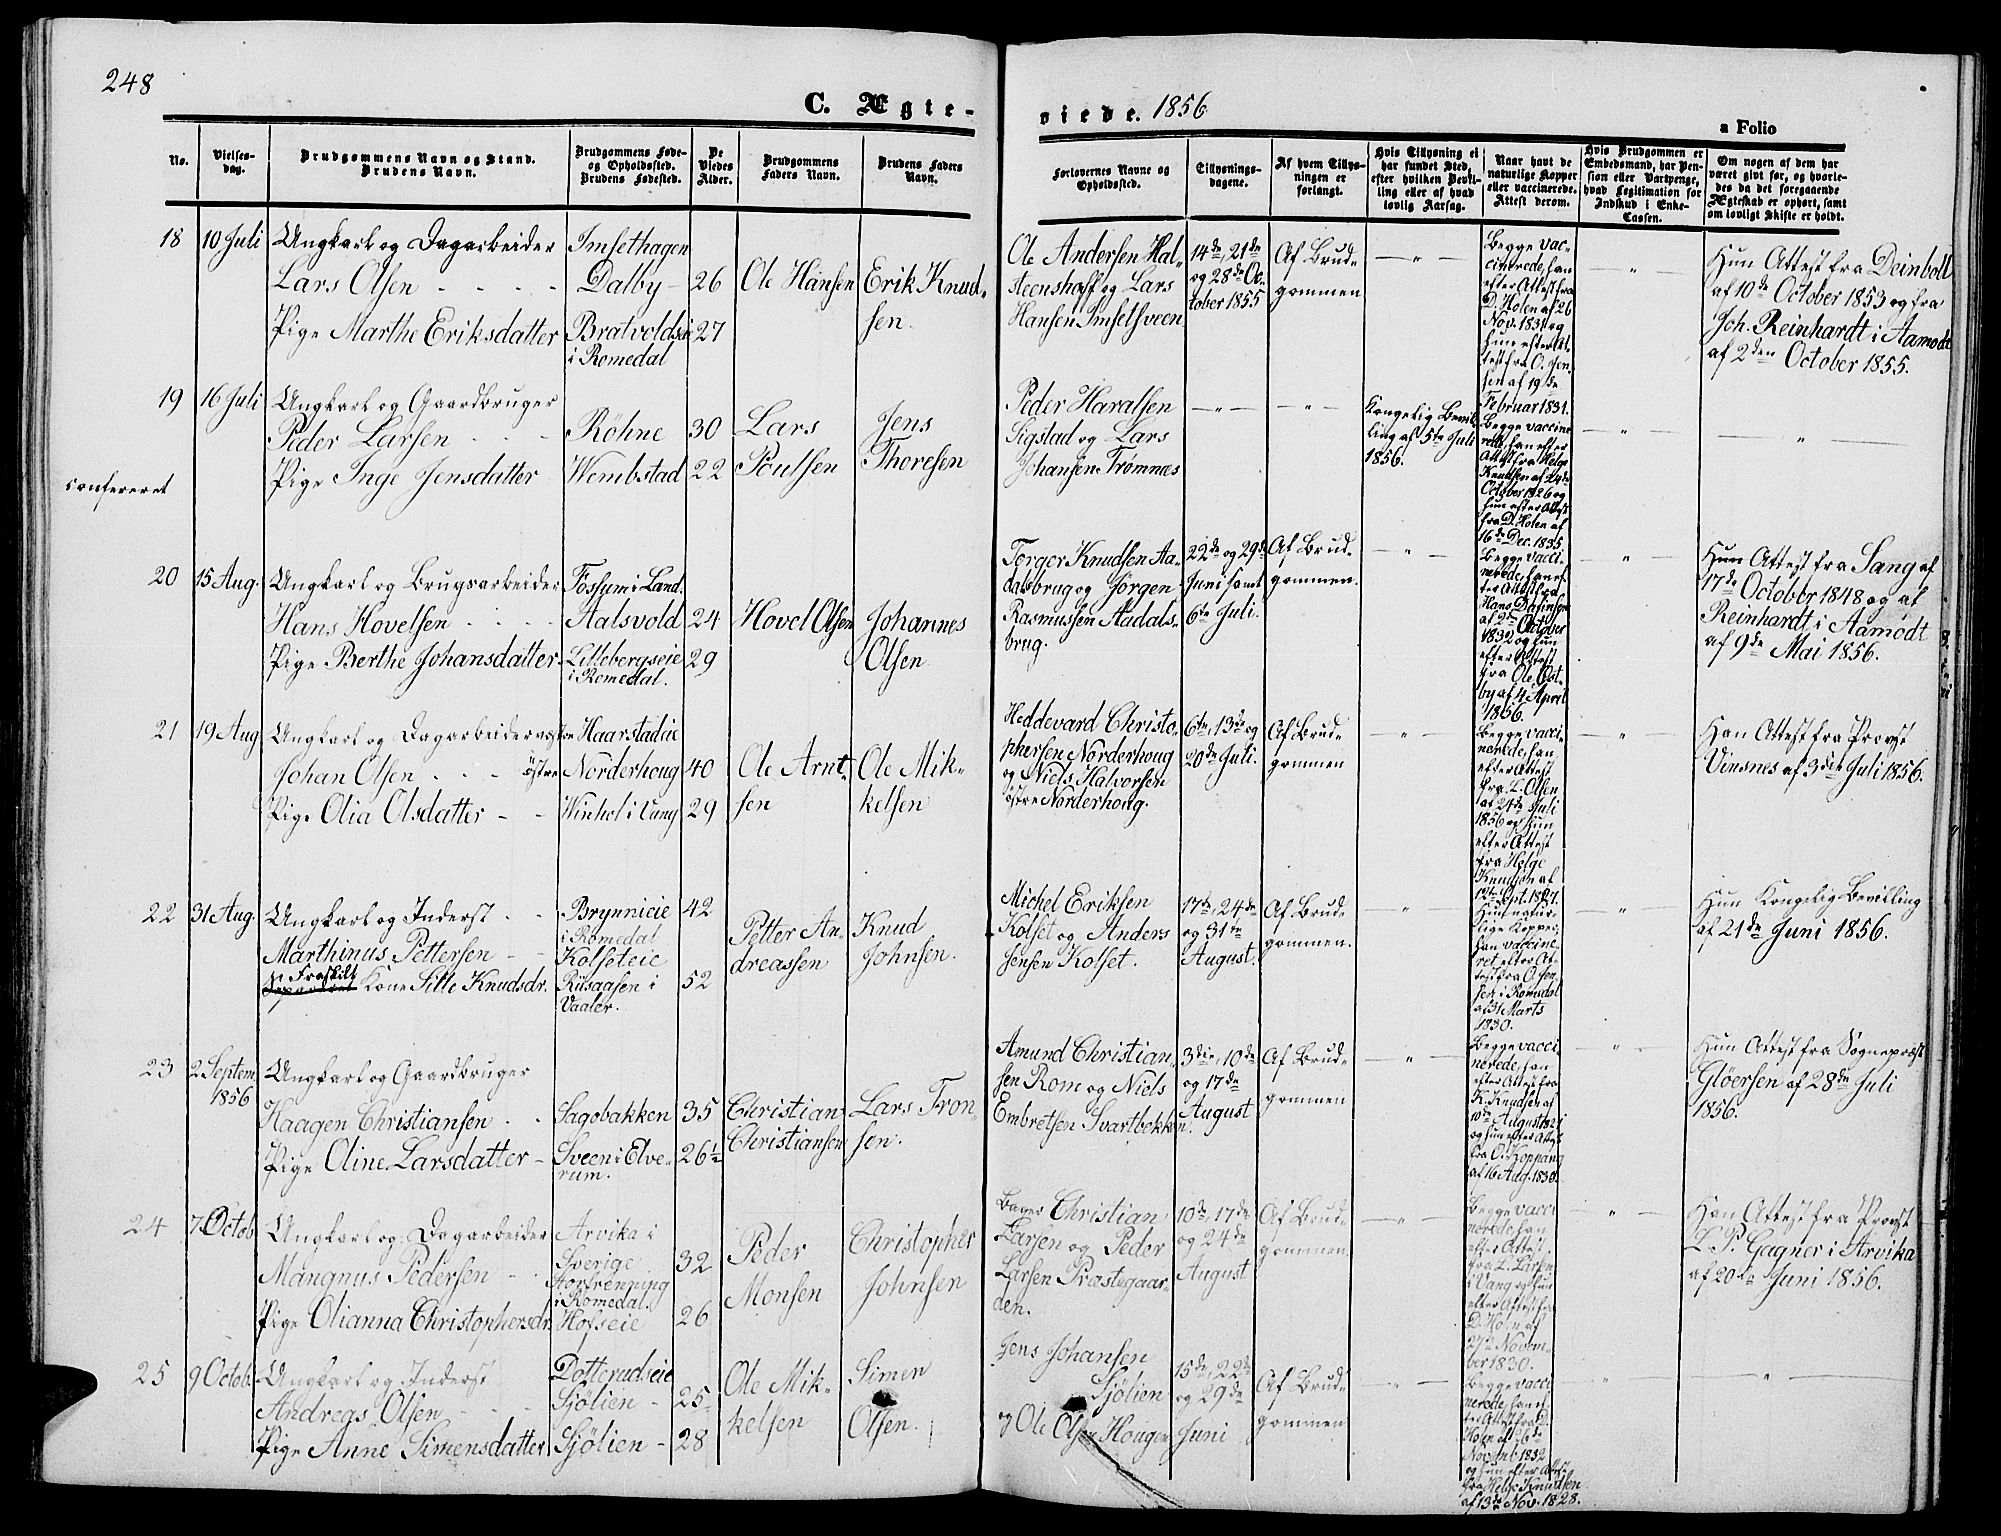 248
C. Ægte-
viede. 1856
a Folio
No.
Vielses-
dag.
Brudgommens Navn og Stand.
Brudens Navn.
Brudgommens Føde-
og Opholdssted.
Brudens Fødested.
De
Viedes
Alder.
Brudgommens
Faders Navn.
Brudens Faders
Navn.
Forlovernes Navne og
Opholdssted.
Tillysnings-
dagene.
Af hvem Tillys-
ningen er
forlangt.
Hvis Tillysning ei
har fundet Sted,
efter hvilken Bevil-
ling eller af hvad
lovlig Aarsag.
Naar havt de
naturlige Kopper
eller vaccinerede.
Attest derom.
Hvis Brudgommen er
Embedsmand, har Pen-
sion eller Vartpenge,
hvad Legitimation for
Indskud i Enke-
Cassen.
Om nogen af dem har
været givt før, og hvorle-
des da det foregaaende
Ægteskab er ophørt, samt
om lovligt Skifte er holdt.
18
10 Juli
Ungkarl og Dagarbeider
Lars Olsen
Pige Marthe Eriksdatter
Imsethagen
Dalby
Bratvoldseie
i Romedal
26
27
Ole Hansen
Erik Knud-
sen.
Ole Andersen Hal-
steenshof og Lars
Hansen Imselsveen
14de, 21de
og 28de Oc-
tober 1855
Af Brud-
gommen
Begge vac-
cinerede, han
efter Attest fra
D. Holen af 26
Nov. 1831 og
hun efter At-
test fra O. Jen-
sen af 19de
Februar 1831.
Hun Attest fra Deinboll
af 10de October 1853 og fra
Joh. Reinhardt i Aamodt
af 2den October 1855.
19
16 Juli
Ungkarl og Gaardbruger
Peder Larsen
Pige Inge Jensdatter
Röhne
Wembstad
30
22
Lars
Poulsen
Jens
Thoresen
Peder Haralsen
Sigstad og Lars
Johansen Trømnæs
Kongelig Bevil-
ling af 5te Juli
1856.
Begge vaccine-
rede, han efter
Attest fra Helge
Knudsen af 24de
October 1826 og
hun efter Attest
fra D. Holen af
16de Dec. 1835.
confereret
20
15 Aug.
Ungkarl og Brugsarbeider
Hans Hovelsen
Pige Berthe Johansdatter
Fossum i Land.
Aalsvold
Lillebergseie
i Romedal.
24
29
Hovel Olsen
Johannes
Olsen
Torger Knudsen Aa-
dalsbrug og Jörgen
Rasmussen Aadals-
brug.
22de og 29de
Juni samt
6te Juli.
Af Brud-
gommen.
Begge vacci-
nerede, han ef-
ter Attest fra
af 2de October
1832 og hun
efter Attest
fra Ole Øst-
by af 4 April
1856.
Hun Attest fra Sang af
17de October 1848 og af
Reinhardt i Aamodt
af 9de Mai 1856.
21
19 Aug
Ungkarl og Dagarbeider vestre
Johan Olsen østre
Pige Olia Olsdatter
Haarstadeie
Norderhoug
Winhol i Vang
40
29
Ole Arnt-
sen
Ole Mik-
kelsen
Heddevard Christo-
phersen Norderhoug
og Niels Halvorsen
østre Norderhoug.
6te, 13de og
20de Juli.
Af Brud-
gommen
Begge vacci-
nerede, han
efter Attest
fra L. Olsen
af 24de Juli
1856 og hun
efter Attest
fra Helge
Knudsen af
12te Sept. 1827.
Han Attest fra Provst
Vinsnes af 3die Juli 1856.
22
31 Aug.
Ungkarl og Inderst
Marthinus Pettersen
Fraskilt
Kone Sille Knudsdr.
Brynnieie
i Romedal
Kolseteie
Riisaasen i
Vaaler.
42
52
Petter An-
dreassen
Knud
Johnsen.
Michel Eriksen
Kolset og Anders
Jensen Kolset.
17de, 24de
og 31te
August.
Af Brud-
gommen.
Hun natur-
lige Kopper,
han vaccine-
ret efter At-
test fra O. Jen-
sen i Romedal
af 31 Marts
1830.
Hun Kongelig Bevilling
af 21de Juni 1856.
23
2 Septem.
1856
Ungkarl og Gaardbruger
Haagen Christiansen
Pige Oline Larsdatter
Sagobakken
Sveen i Elve-
rum.
35
26½
Christian
Christiansen
Lars Tron-
sen.
Amund Christian-
sen Rom og Niels
Embretsen Svartbekken.
3die, 10de
og 17de
August
Af Brud-
gommen
Begge vacci-
nerede, han
efter Attest fra
K. Knudsen af
10de August 1821
og hun efter Attest
fra O. Koppang
af 16 Aug. 1830.
Hun Attest fra Sognepræst
Glöersen af 28de Juli
1856.
24
7 Octob
Ungkarl og Dagarbeider
Mangnus Pedersen
Pige Olianna Christophersdr.
Arvika i
Sverige
i Romedal.
Hofseie
32
26
Peder
Monsen
Christopher
Johnsen
Bager Christian
Larsen og Peder
Larsen Præstegaar-
den.
10de, 17de
og 24de
August
Af Brud-
gommen
Begge vacci-
nerede, han
efter Attest
fra L. Larsen
i Vang og hun
efter Attest fra
D. Holen af
27de Novem-
ber 1830.
Han Attest fra Provst
L. P. Gagner i Arvika
af 20de Juni 1856.
25
9 Octob.
Ungkarl og Inderst
Andreas Olsen
Pige Anne Simensdatter
Dotterudseie
Sjölien
Sjölien
25
28
Ole Mik-
kelsen
Simen
Olsen.
Jens Johansen
Sjölien
og Ole Olsen Hougen
15de, 22de
og 29de
Juni
Af Brud-
gommen
Begge vacci-
nerede, han ef-
ter Attest fra D.
Holen af 6de
Novemb. 1832
og hun efter Attest
fra Helge Knudsen
af 13de Nov. 1828.